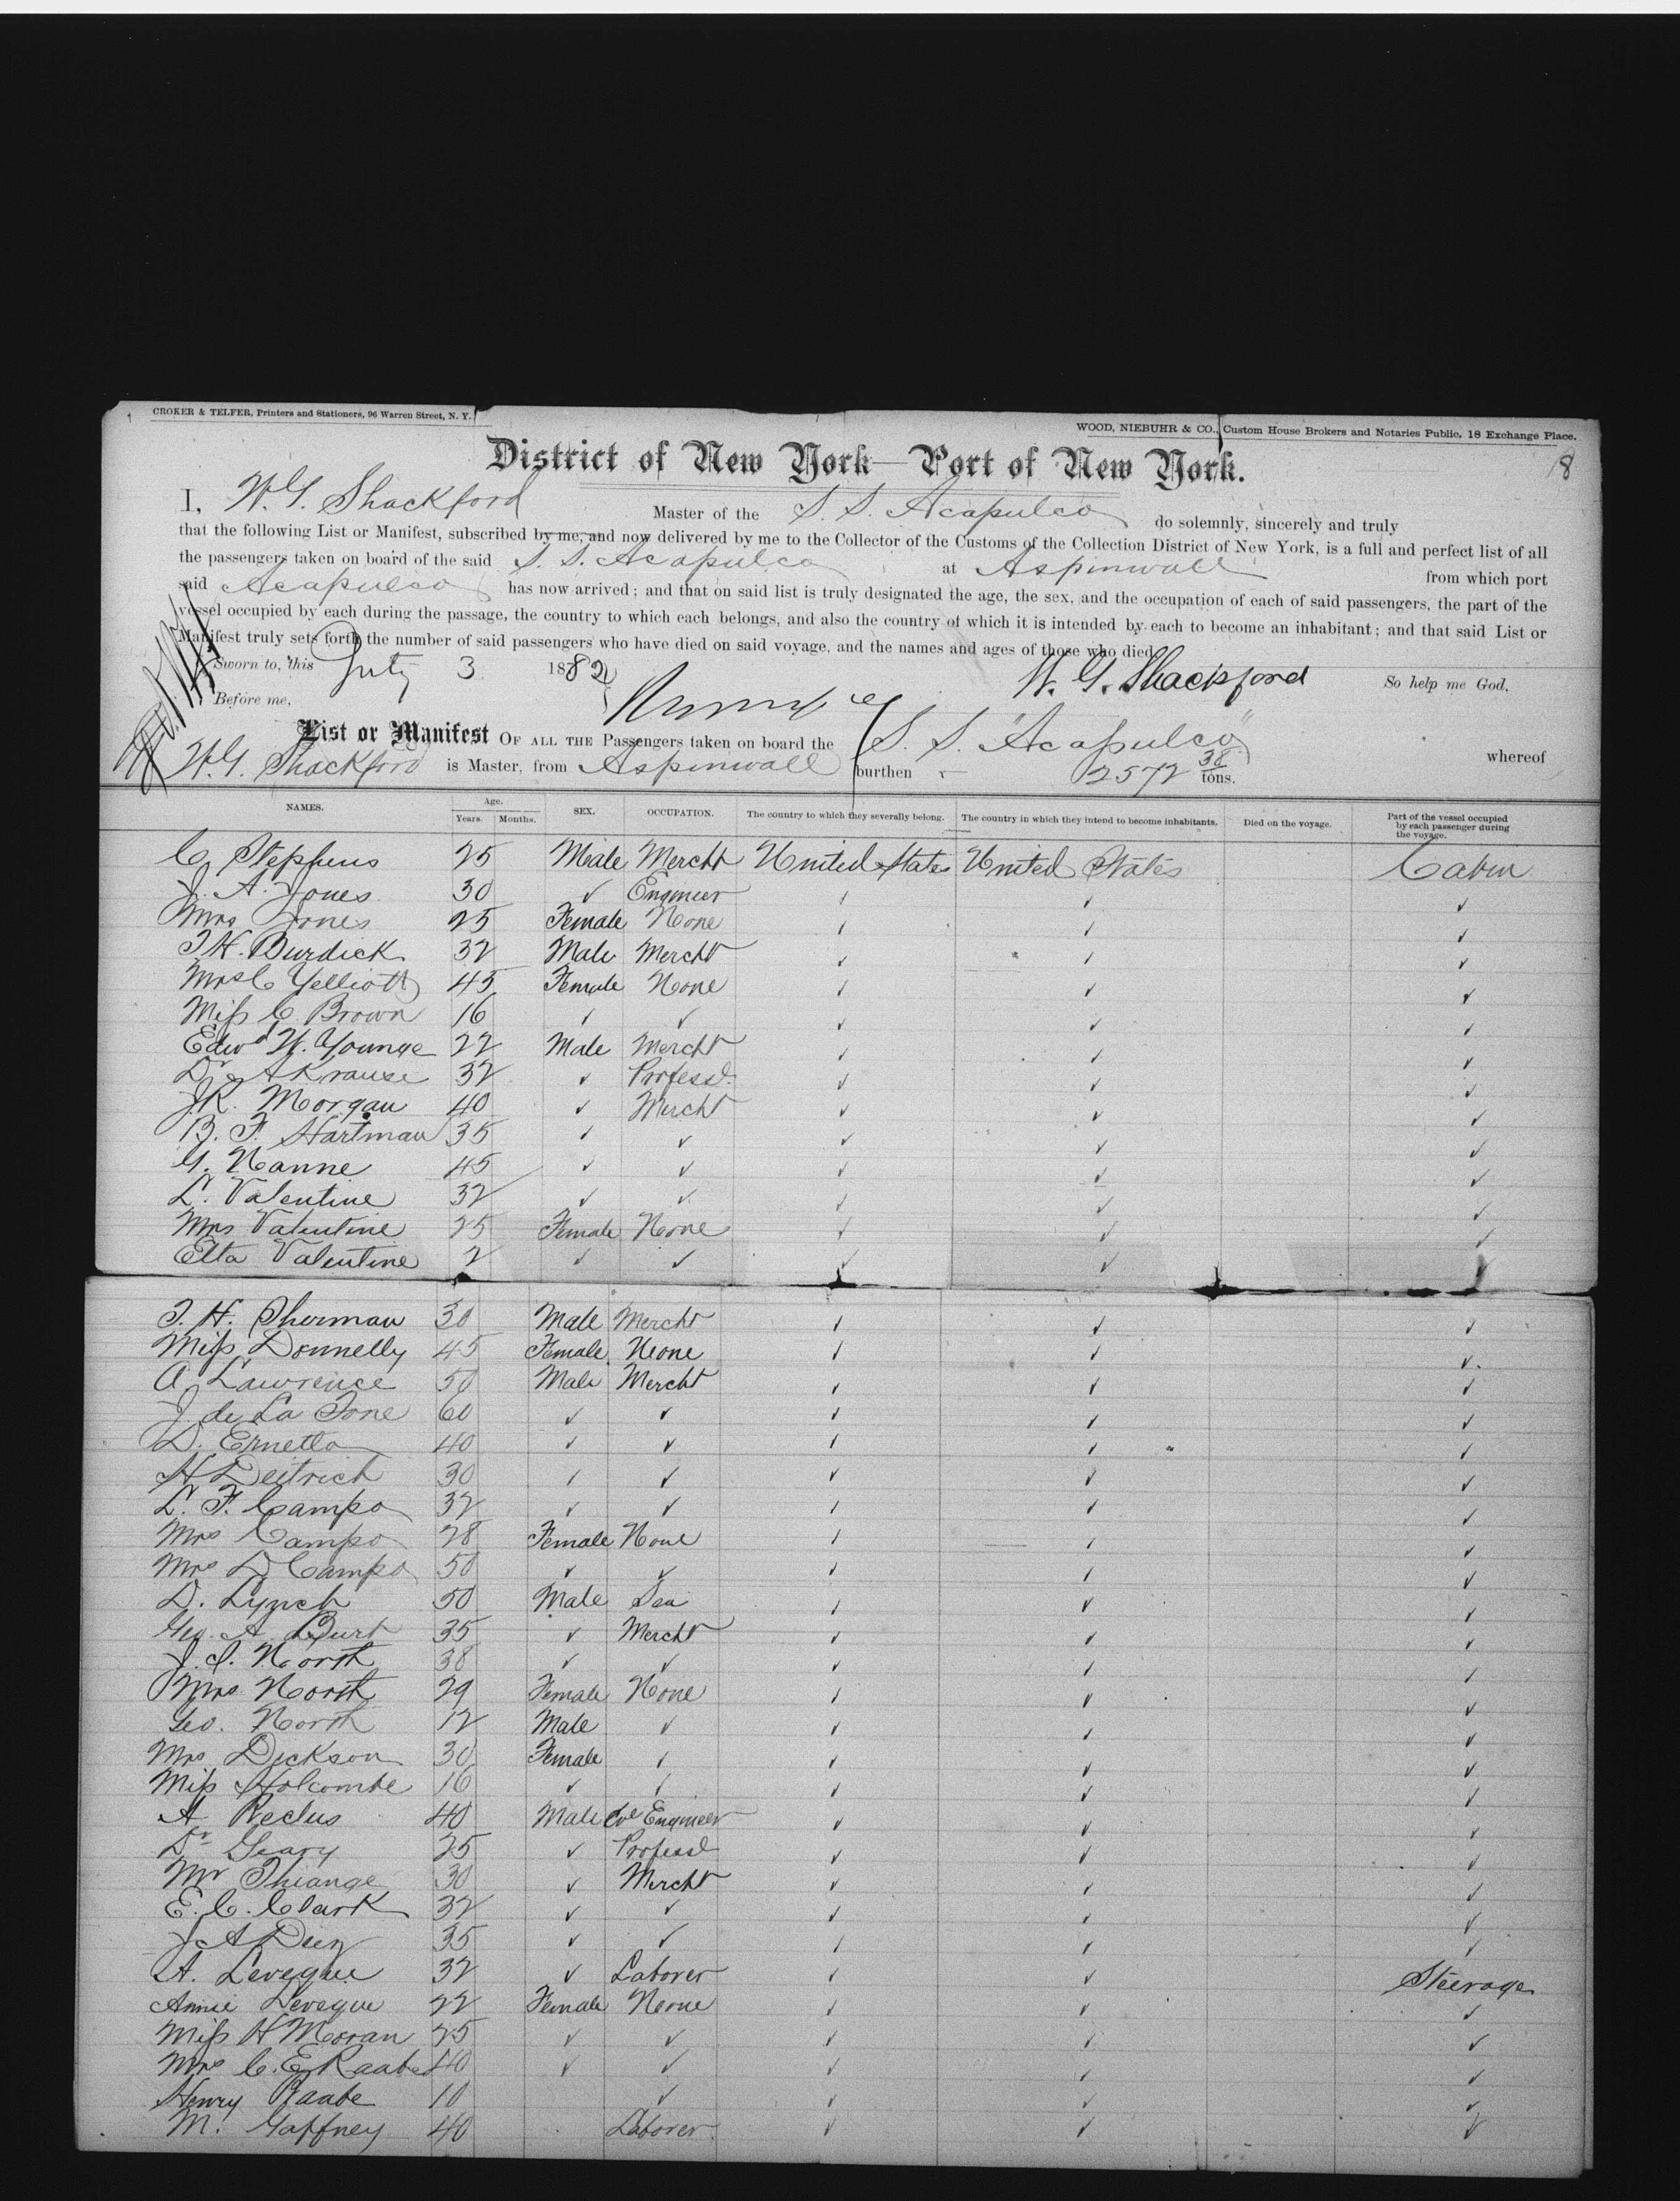 CROKER & TELFER, Printers and Stationers, 96 Warren Street, N. Y.
WOOD, NIEBUHR & CO., Custom House Brokers and Notaries Public, 18 Exchange Place.
District of New York—Port of New York.
8
I, W. G. Shackford Master of the S. S. Acapulco do solemnly, sincerely and truly
that the following List or Manifest, subscribed by me, and now delivered by me to the Collector of the Customs of the Collection District of New York, is a full and perfect list of all
the passengers taken on board of the said S. S. Acapulco at Aspinwall from which port
said Acapulco has now arrived; and that on said list is truly designated the age, the sex, and the occupation of each of said passengers, the part of the
vessel occupied by each during the passage, the country to which each belongs, and also the country of which it is intended by each to become an inhabitant; and that said List or
Manifest truly sets forth the number of said passengers who have died on said voyage, and the names and ages of those who died.
Sworn to, this July 3 1882 W. G. Shackford So help me God.
Before me,
List or Manifest OF ALL THE Passengers taken on board the S. S. "Acapulco" whereof
W. G. Shackford is Master, from Aspinwall burthen 2572 38/ tons.
NAMES. Age. Years. Months. SEX. OCCUPATION. The country to which they severally belong. The country in which they intend to become inhabitants. Died on the voyage. Part of the vessel occupied by each passenger during the voyage.
C. Stephens 25 Male Mercht United States United States Cabin
J. A. Jones 30 ✓ Engineer ✓ ✓ ✓
Mrs Jones 25 Female None ✓ ✓ ✓
T. H. Burdick 32 Male Mercht ✓ ✓ ✓
Mrs C Yelliott 45 Female None ✓ ✓ ✓
Miss C. Brown 16 ✓ ✓ ✓ ✓ ✓
Edwd W. Younge 22 Male Mercht ✓ ✓ ✓
Dr A Krause 32 ✓ Professl. ✓ ✓ ✓
J. R. Morgan 40 ✓ Mercht ✓ ✓ ✓
B. F. Hartman 35 ✓ ✓ ✓ ✓ ✓
G. Nanne 45 ✓ ✓ ✓ ✓ ✓
L. Valentine 32 ✓ ✓ ✓ ✓ ✓
Mrs Valentine 25 Female None ✓ ✓ ✓
Etta Valentine 2 ✓ ✓ ✓ ✓ ✓
T. H. Sherman 30 Male Mercht ✓ ✓ ✓
Miss Donnelly 45 Female None ✓ ✓ ✓
A. Lawrence 50 Male Mercht ✓ ✓ ✓
J. de La 60 ✓ ✓ ✓ ✓ ✓
D. Ernetta 40 ✓ ✓ ✓ ✓ ✓
H Deitrich 30 ✓ ✓ ✓ ✓ ✓
L. F. Campo 32 ✓ ✓ ✓ ✓ ✓
Mrs Campo 28 Female None ✓ ✓ ✓
Mrs D Campo 50 ✓ ✓ ✓ ✓ ✓
D. Lynch 50 Male Sea ✓ ✓ ✓
Geo. A Burt 35 ✓ Mercht ✓ ✓ ✓
J. S. North 38 ✓ ✓ ✓ ✓ ✓
Mrs North 29 Female None ✓ ✓ ✓
Geo. North 12 Male ✓ ✓ ✓ ✓
Mrs Dickson 30 Female ✓ ✓ ✓ ✓
Miss Holcombe 16 ✓ ✓ ✓ ✓ ✓
A Reclus 40 Male Cvl Engineer ✓ ✓ ✓
Dr Geary 25 ✓ Professl ✓ ✓ ✓
Mr Thiange 30 ✓ Mercht ✓ ✓ ✓
E. C. Clark 32 ✓ ✓ ✓ ✓ ✓
J A 35 ✓ ✓ ✓ ✓ ✓
A. Leveque 32 ✓ Laborer ✓ ✓ Steerage
Annie Leveque 22 Female None ✓ ✓ ✓
Miss H Moran 25 ✓ ✓ ✓ ✓ ✓
Mrs C. E. Raabe 40 ✓ ✓ ✓ ✓ ✓
Henry Raabe 10 ✓ ✓ ✓ ✓
M. Gaffney 40 Laborer ✓ ✓ ✓